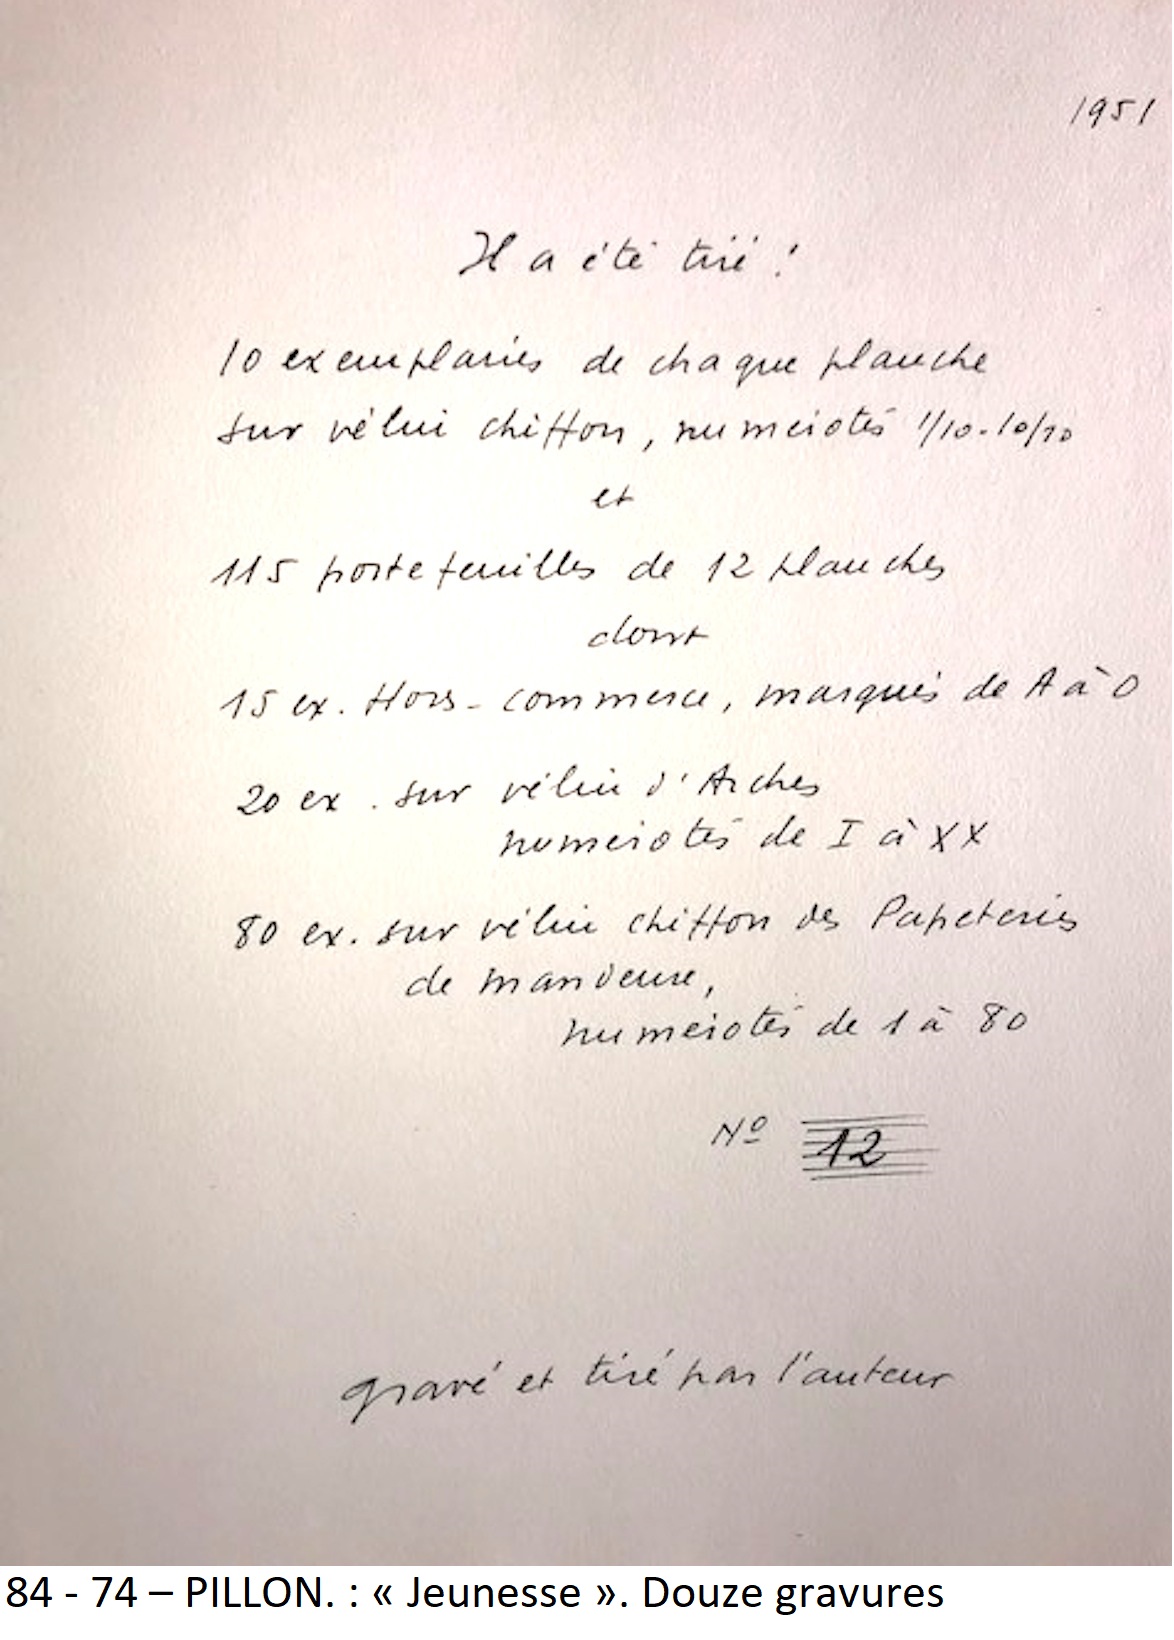 1951
Il a été tiré :
10 exemplaires de chaque planche
sur vélin chiffon, numérotés 1/10-10/10
et
115 portefeuilles de 12 planches
dont
15 ex. Hors-commerce, marqués de A à O
20 ex. sur vélin d'Arches
numérotés de I à XX
80 ex. sur vélin chiffon des Papeteries
de Mandeure,
numérotés de 1 à 80
Nº 12
gravé et tiré par l'auteur
84 - 74 – PILLON. : « Jeunesse ». Douze gravures